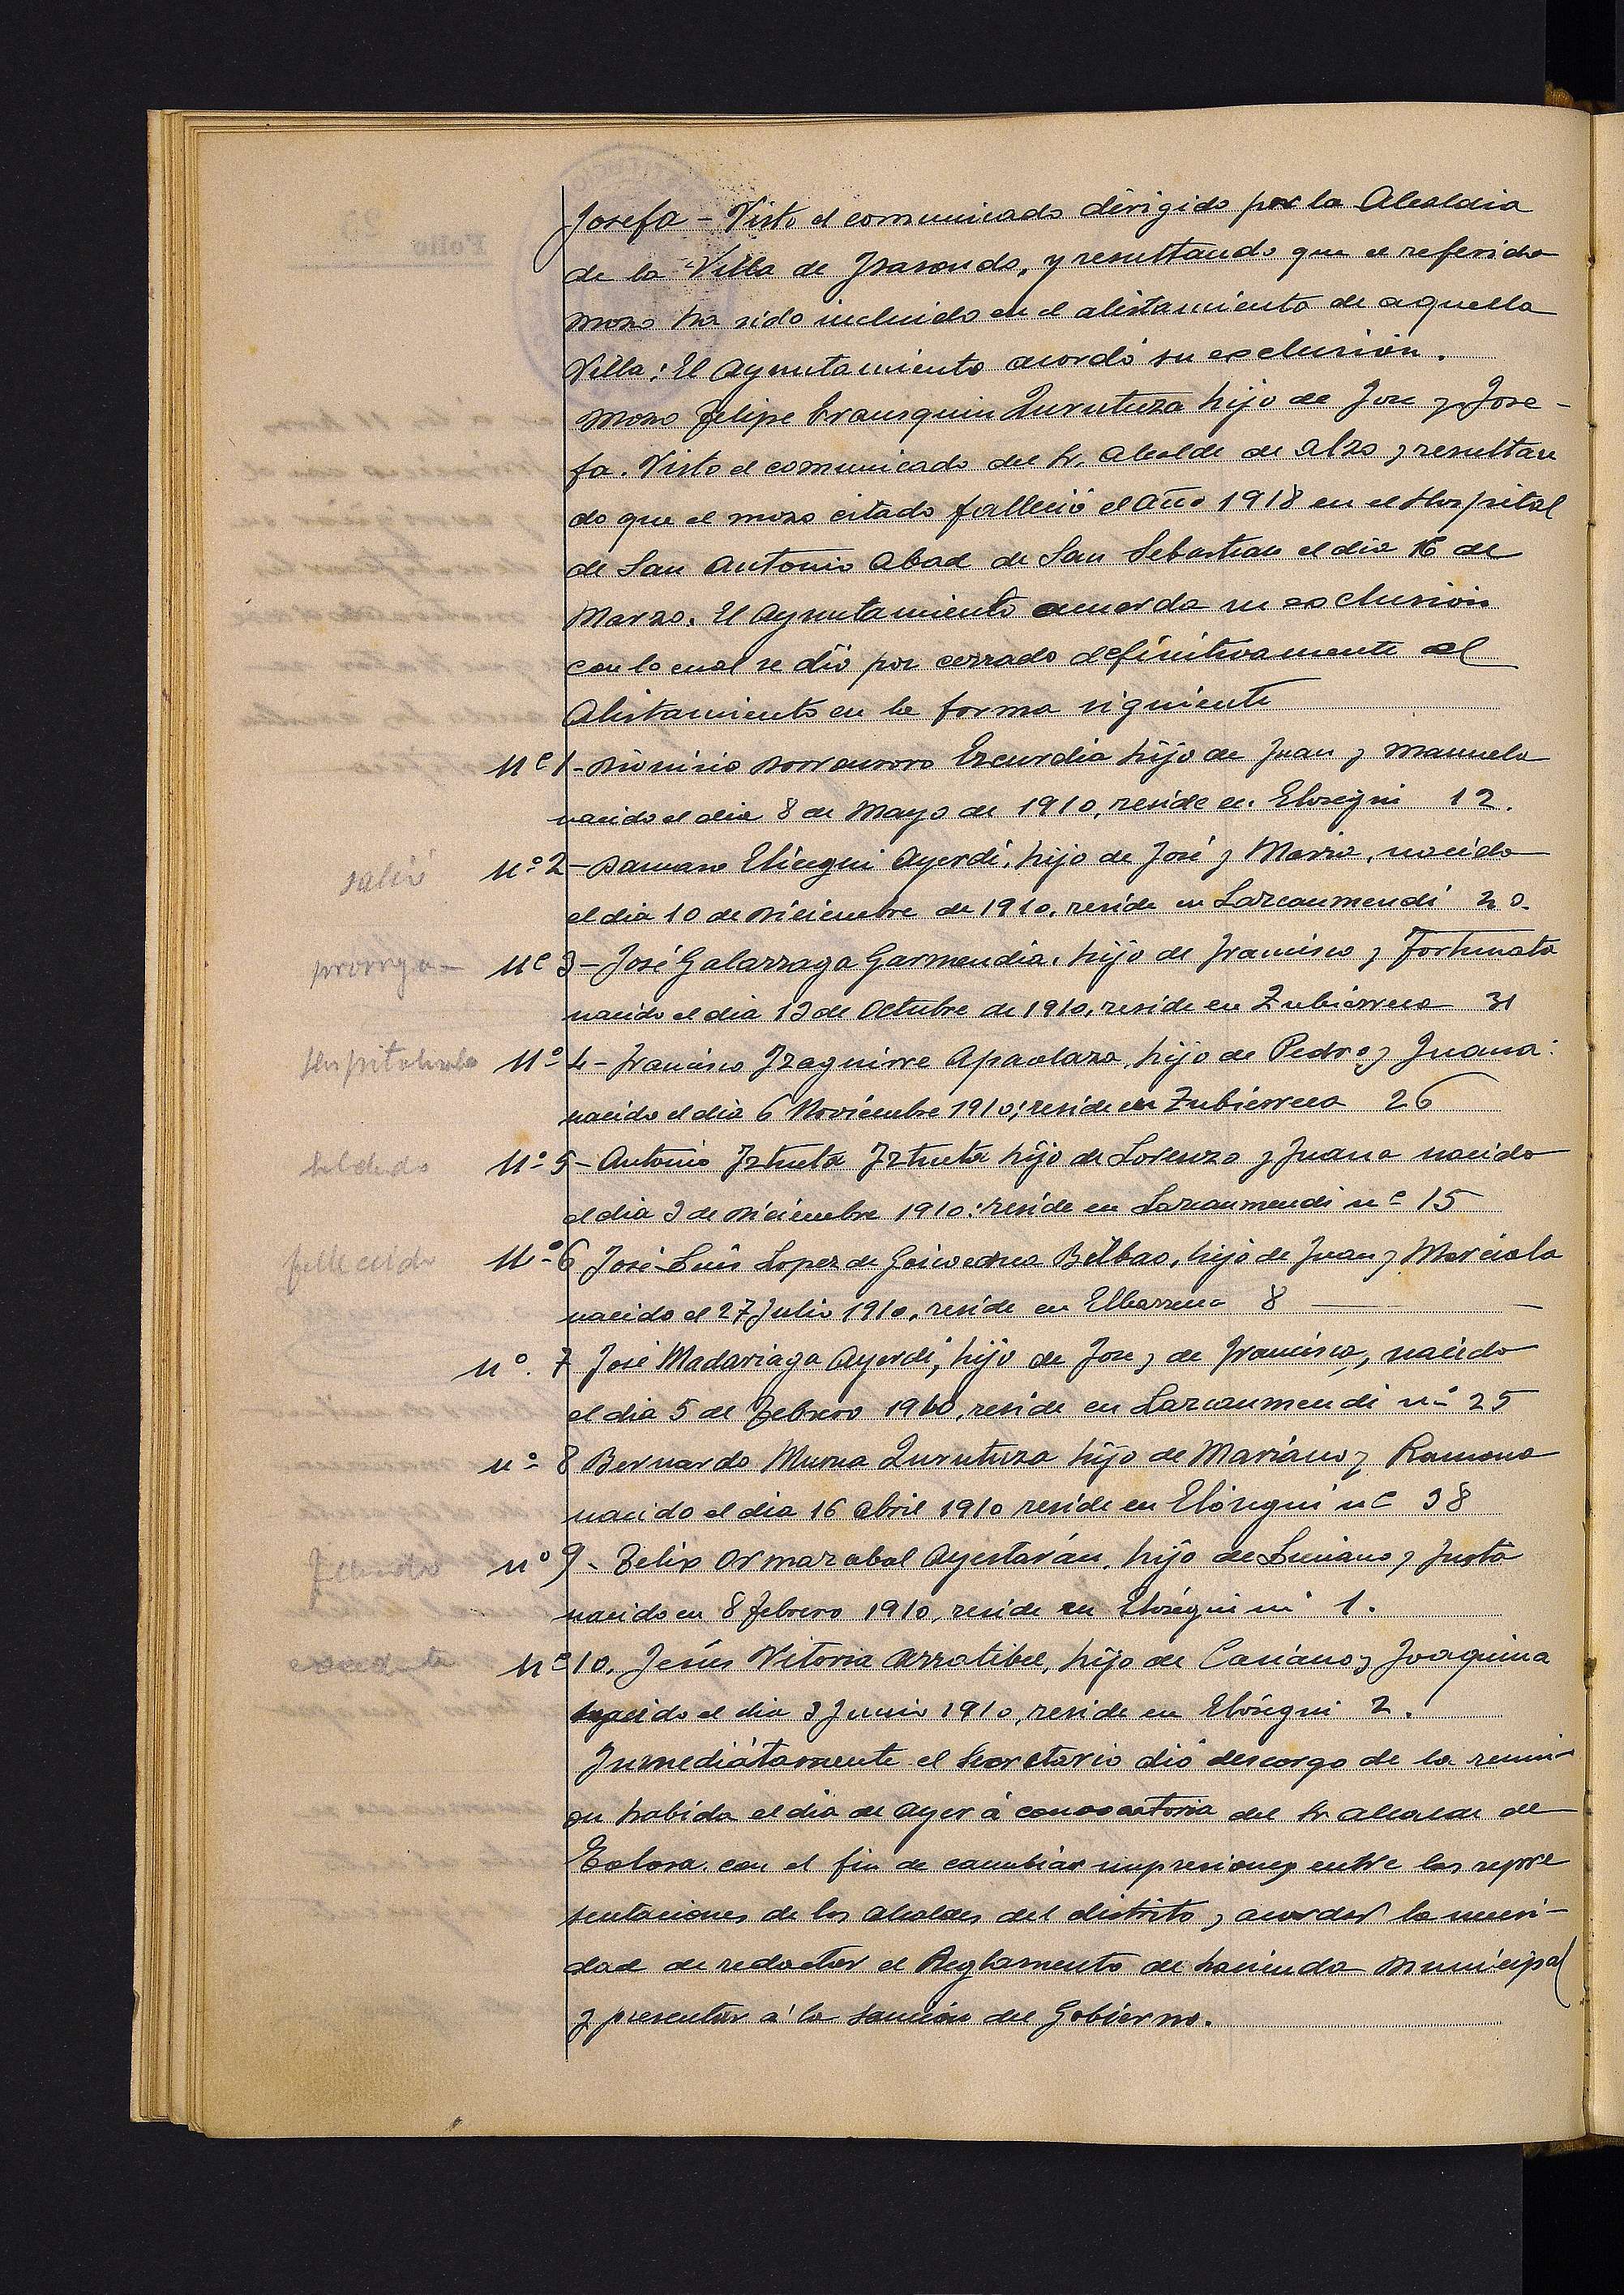 Josefa - Visto el comunicado dirigido por la Alcaldia
de la Villa de Isasondo, y resultando que el referido
mozo ha sido incluido en el alistamiento de aquella
Villa; El Ayuntamiento acordó su exclusión.
Mozo Felipe Irausquin Zurutuza hijo de Jose y Jose-
fa. Visto el comunicado del Sr. Alcalde de Alzo y resultan
do que el mozo citado falleció el Año 1918 en el Hospital
de San Antonio Abad de San Sebastian el dia 16 de
Marzo. El Ayuntamiento acuerda su exclusion
con lo cual se dió por cerrado definitivamente el
Alistamiento en la forma siguiente
Nº 1 - Dionisio Dorronsoro Ezcurdia hijo de Juan y Manuela
nacido el dia 8 de Mayo de 1910, reside en Elosegui 12.
salió Nº 2 - Damaso Elicegui Ayerdi, hijo de José y Maria, nacido
el dia 10 de Diciembre de 1910. reside en Lazcaumendi 20.
prorroga - Nº 3 - José Galarraga Garmendia, hijo de Francisco y Fortunata
nacido el dia 13 de Octubre de 1910, reside en Zubierreca 31
Hospitalizado Nº 4 - Francisco Izaguirre Apaolaza, hijo de Pedro y Juana:
nacido el dia 6 Noviembre 1910; reside en Zubierreca 26
soldado Nº 5 - Antonio Iztueta Iztueta hijo de Lorenzo y Juana nacido
el dia 3 de Diciembre 1910: reside en Lazcaumendi nº 15
fallecido Nº 6 José-Luis Lopez de Goicoechea Bilbao, hijo de Juan y Marciala
nacido el 27 Julio 1910, reside en Elbarrena 8
nº. 7 José Madariaga Ayerdi, hijo de Jose y de Francisca, nacido
el dia 5 de Febrero 1910, reside en Lazcaumendi nº 25
nº 8 Bernardo Murua Zurutuza hijo de Mariano y Ramona
nacido el dia 16 Abril 1910 reside en Elósegui nº 38
nº 9 - Felix Ormazabal Ayestarán, hijo de Luciano y Justa
nacido en 8 febrero 1910, reside en Elósegui nº 1.
excedente nº 10. Jesús Vitoria Arratibel, hijo de Casiano y Joaquina
nacido el dia 3 Junio 1910, reside en Elósegui 2.
Inmediátamente el Secretario dió descargo de la reuni-
on habida el dia de ayer á convocatoria del Sr. alcalde de
Tolosa, con el fin de cambiar impresiones entre las repre
sentaciones de los alcaldes del distrito, y acordar la necesi-
dad de redactar el Reglamento de hacienda Municipal
y presentar á la sanción del Gobierno.